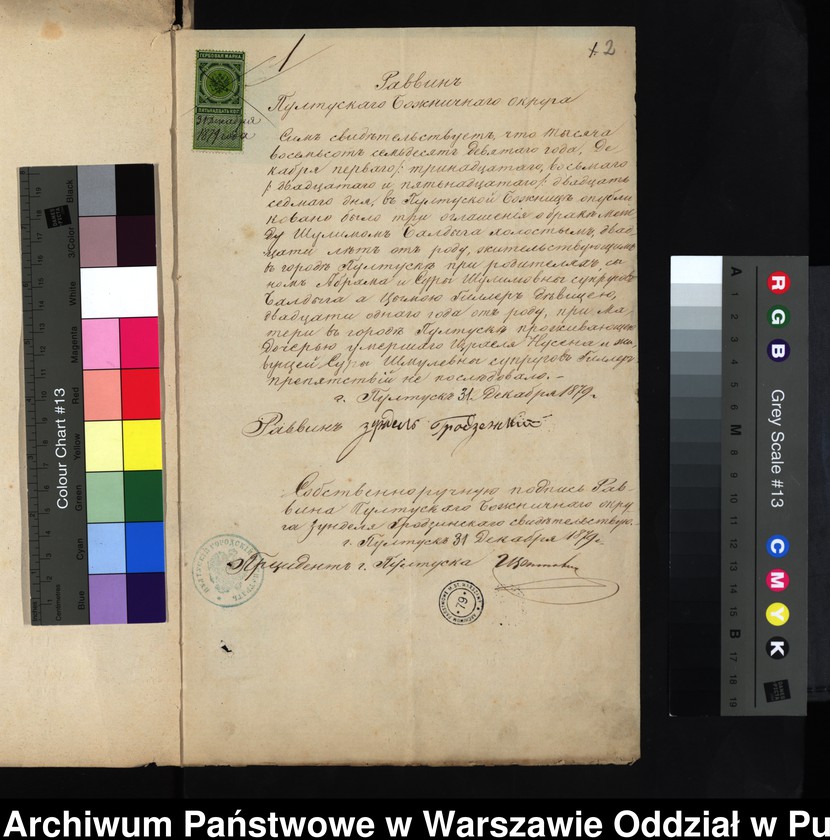 1. 2
ГЕРБОВАЯ МАРКА
31 декабря
1879 года
Раввинъ
Пултускаго Божничнаго округа
Симъ свидѣтельствуетъ, что тысяча
восемьсотъ семьдесятъ девятаго года, Де
кабря перваго /: тринадцатаго, восьмаго
/: двадцатаго и пятьнадцатаго /: двадцать
седмаго дня, въ Пултуской Божницѣ опубли
ковано было три оглашенія о бракѣ меж
ду Шулимомъ Балдыга холостымъ, двад
цати лѣтъ отъ роду, жительствующимъ
въ городѣ Пултускѣ при родителяхъ, сы
номъ Абрама и Суры Шулимовны супруговъ
Балдыга а Цымою Гиллеръ дѣвицею,
двадцати одного года отъ роду, при Ма
тери въ городѣ Пултускѣ проживающею
Дочерью умершаго Израеля Нусена и жи
вущей Суры Шмулевны супруговъ Гиллеръ
препятствій не послѣдовало. –
г. Пултускъ 31 Декабря 1879 г.
Раввинъ
Собственноручную подпись Рав-
вина Пултускаго Божничнаго окру
га Зунделя Гродзинскаго свидѣтельствую. –
г. Пултускъ 31 Декабря 1879 г.
Президентъ г. Пултуска
79
Colour Chart #13
Black
3/Color
White
Magenta
Red
Yellow
Green
Cyan
Blue
Centimetres
Grey Scale #13
R
G
B
C
M
Y
K
A
1
2
3
4
5
6
M
8
9
10
11
12
13
14
15
B
17
18
19
Archiwum Państwowe w Warszawie Oddział w Pu